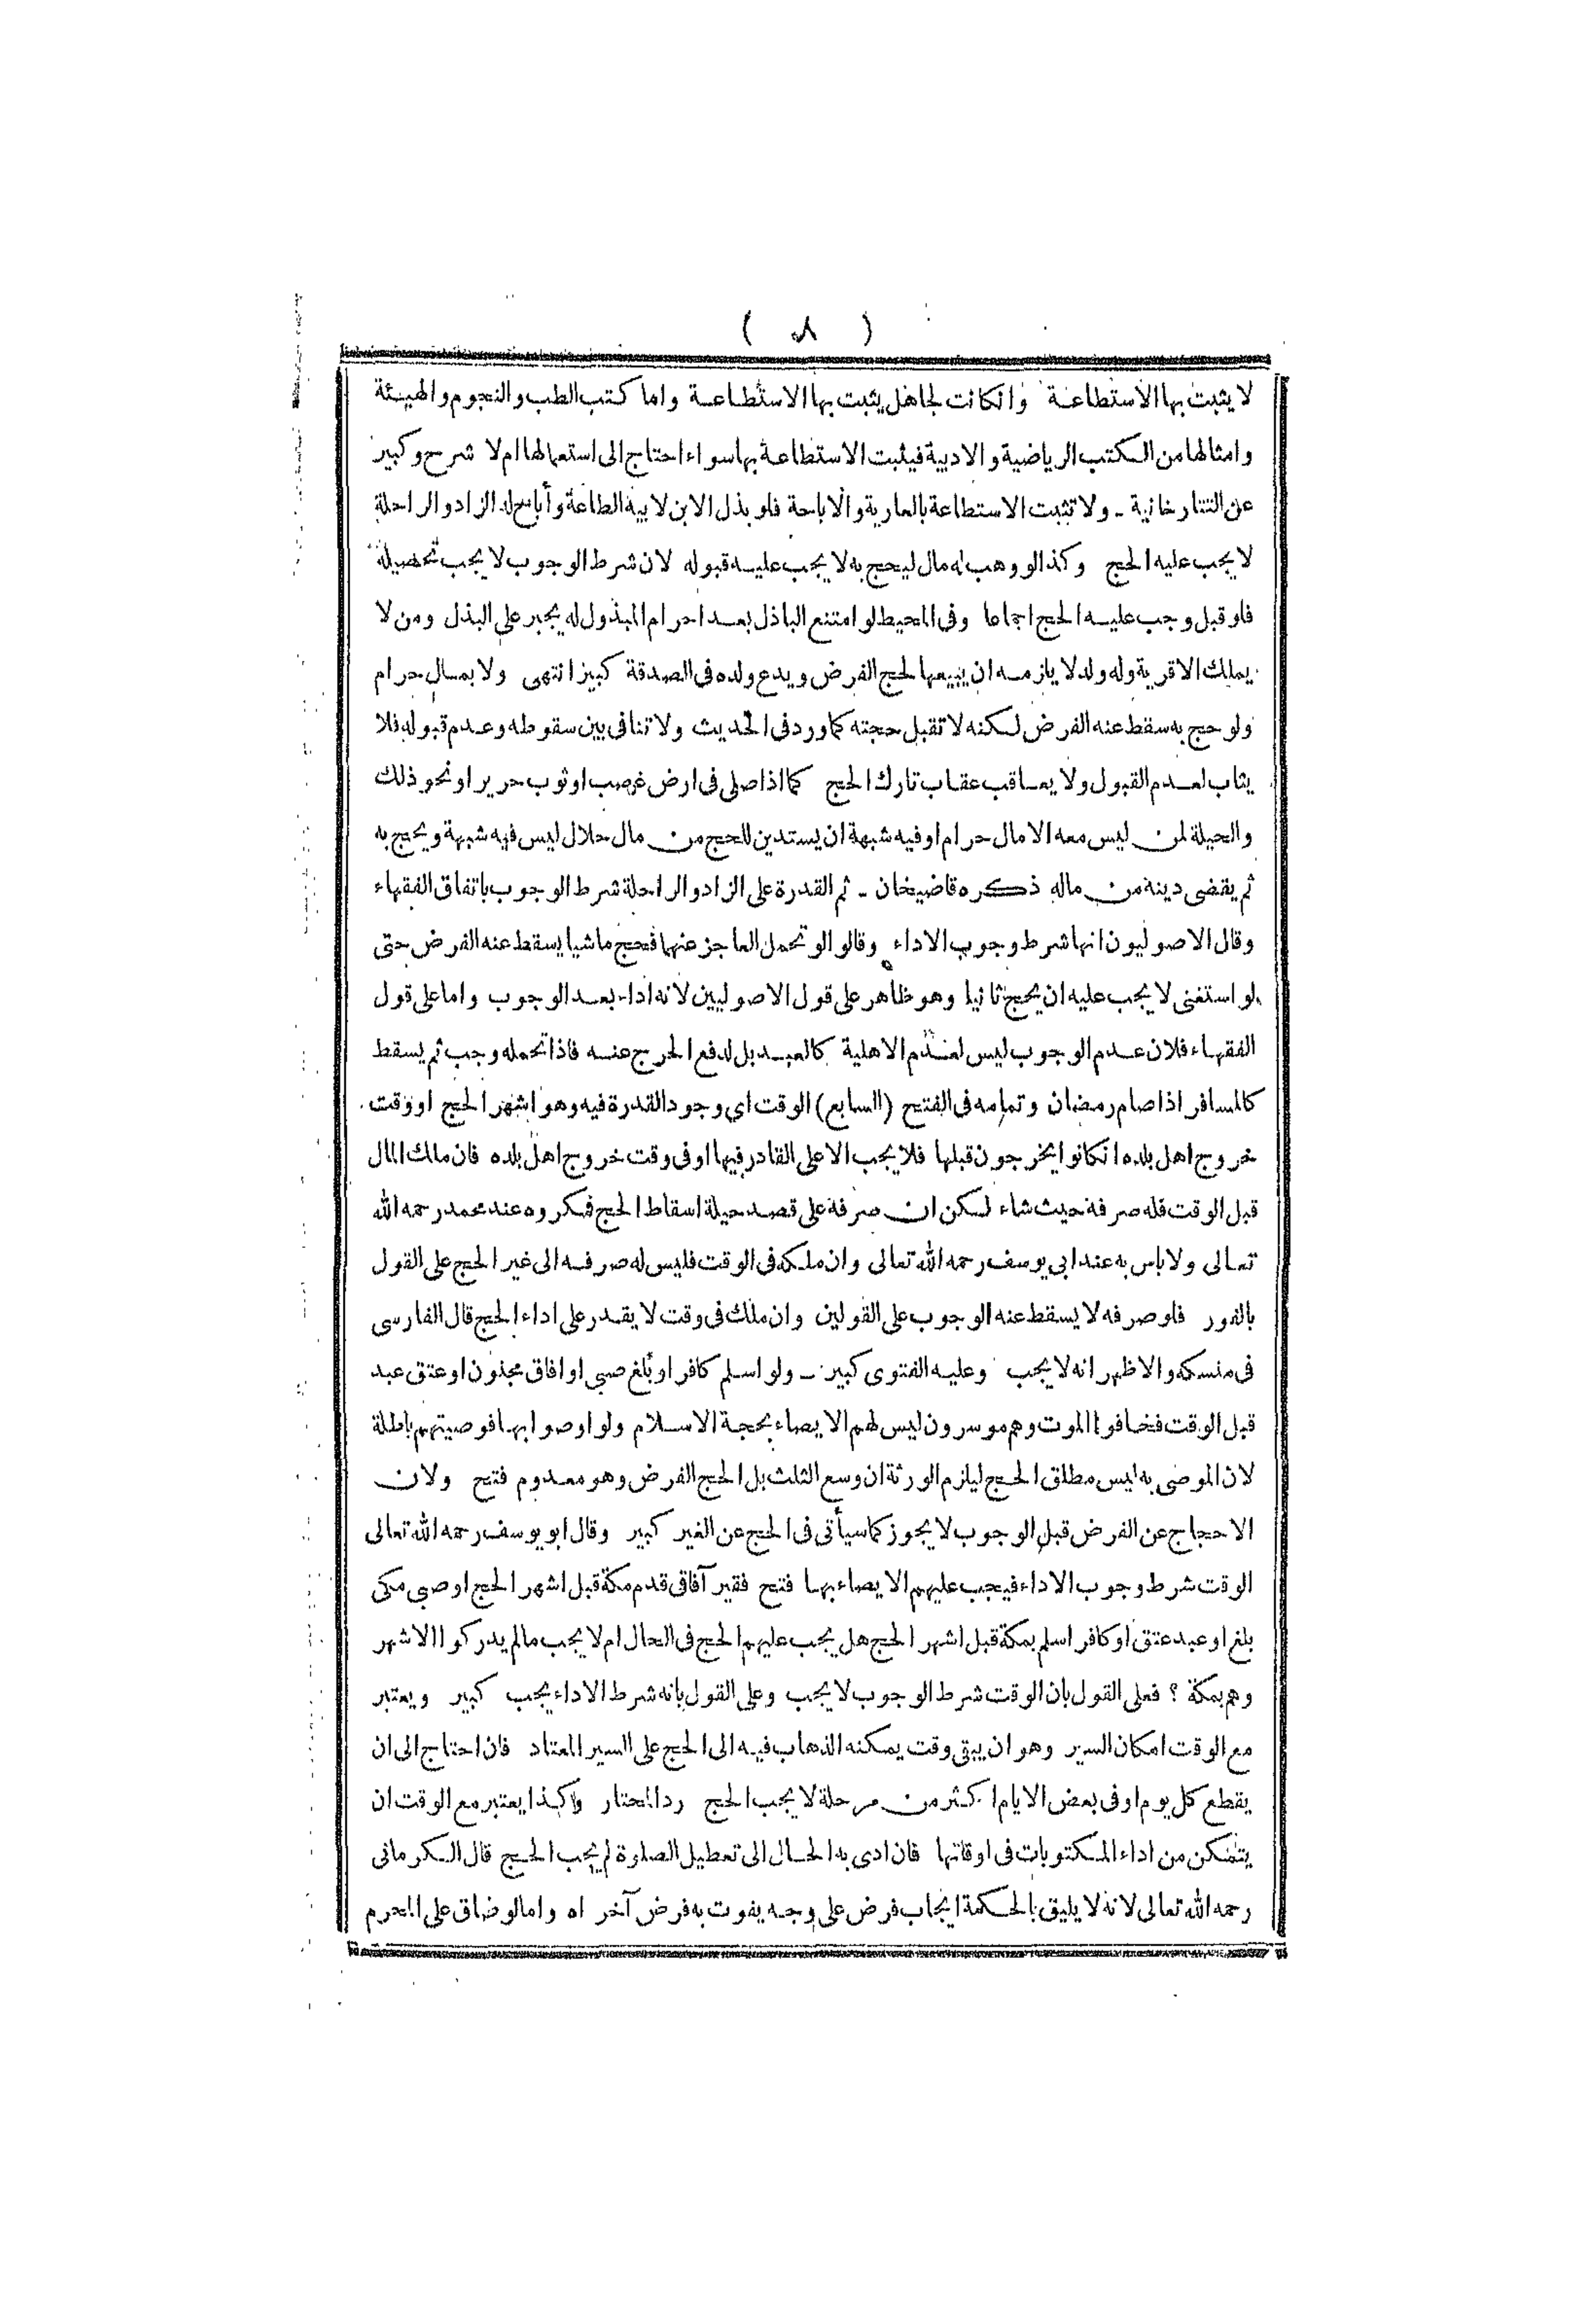 ( ٨ )
لا يثبت بها الاستطاعة وانكانت لجاهل يثبت بها الاستطاعة واما كتب الطب والنجوم والهيئة
وامثالها من الكتب الرياضية والادبية فيثبت الاستطاعة بها سواء احتاج الى استعمالها ام لا شرح وكبير
عن التتارخانية ـ ولا تثبت الاستطاعة بالعارية والاباحة فلو بذل الابن لابيه الطاعة وأباح له الزاد والراحلة
لا يجب عليه الحج وكذا لو وهب له مال ليحج به لا يجب عليه قبوله لان شرط الوجوب لا يجب تحصيله
فلو قبل وجب عليه الحج اجماعا وفى المحيط لو امتنع الباذل بعد احرام المبذول له يجبر على البذل ومن لا
يملك الا قرية وله ولد لا يلزمه ان يبيعها لحج الفرض ويدع ولده فى الصدقة كبير انتهى ولا بمال حرام
ولو حج به سقط عنه الفرض لكنه لا تقبل حجته كما ورد فى الحديث ولا تنافى بين سقوطه وعدم قبوله فلا
يثاب لعدم القبول ولا يعاقب عقاب تارك الحج كما اذا صلى فى ارض غصب او ثوب حرير او نحو ذلك
والحيلة لمن ليس معه الا مال حرام او فيه شبهة ان يستدين للحج من مال حلال ليس فيه شبهة ويحج به
ثم يقضى دينه من ماله ذكره قاضيخان ـ ثم القدرة على الزاد والراحلة شرط الوجوب باتفاق الفقهاء
وقال الاصوليون انها شرط وجوب الاداء وقالوا لو تحمل العاجز عنهما فحج ماشيا يسقط عنه الفرض حتى
لو استغنى لا يجب عليه ان يحج ثانيا وهو ظاهر على قول الاصوليين لانه اداء بعد الوجوب واما على قول
الفقهاء فلان عدم الوجوب ليس لعدم الاهلية كالعبد بل لدفع الحرج عنه فاذا تحمله وجب ثم يسقط
كالمسافر اذا صام رمضان وتمامه فى الفتح (السابع) الوقت اي وجود القدرة فيه وهو اشهر الحج او وقت
خروج اهل بلده انكانوا يخرجون قبلها فلا يجب الا على القادر فيها او فى وقت خروج اهل بلده فان ملك المال
قبل الوقت فله صرفه حيث شاء لكن ان صرفه على قصد حيلة اسقاط الحج فمكروه عند محمد رحمه الله
تعالى ولا باس به عند ابى يوسف رحمه الله تعالى وان ملكه فى الوقت فليس له صرفه الى غير الحج على القول
بالفور فلو صرفه لا يسقط عنه الوجوب على القولين وان ملك فى وقت لا يقدر على اداء الحج قال الفارسى
فى منسكه والاظهر انه لا يجب وعليه الفتوى كبير ـ ولو اسلم كافر او بلغ صبي او افاق مجنون او عتق عبد
قبل الوقت فخافوا الموت وهم موسرون ليس لهم الايصاء بحجة الاسلام ولو اوصوا بها فوصيتهم باطلة
لان الموصى به ليس مطلق الحج ليلزم الورثة ان وسع الثلث بل الحج الفرض وهو معدوم فتح ولان
الاحجاج عن الفرض قبل الوجوب لا يجوز كما سيأتى فى الحج عن الغير كبير وقال ابو يوسف رحمه الله تعالى
الوقت شرط وجوب الاداء فيجب عليهم الايصاء بها فتح فقير آفاقى قدم مكة قبل اشهر الحج او صبى مكى
بلغ او عبد عتق او كافر اسلم بمكة قبل اشهر الحج هل يجب عليهم الحج فى الحال ام لا يجب مالم يدركوا الاشهر
وهم بمكة ؟ فعلى القول بان الوقت شرط الوجوب لا يجب وعلى القول بانه شرط الاداء يجب كبير ويعتبر
مع الوقت امكان السير وهو ان يبقى وقت يمكنه الذهاب فيه الى الحج على السير المعتاد فان احتاج الى ان
يقطع كل يوم او فى بعض الايام اكثر من مرحلة لا يجب الحج رد المحتار وكذا يعتبر مع الوقت ان
يتمكن من اداء المكتوبات فى اوقاتها فان ادى به الحال الى تعطيل الصلوة لم يجب الحج قال الكرمانى
رحمه الله تعالى لانه لا يليق بالحكمة ايجاب فرض على وجه يفوت به فرض آخر اه واما لو ضاق على المحرم